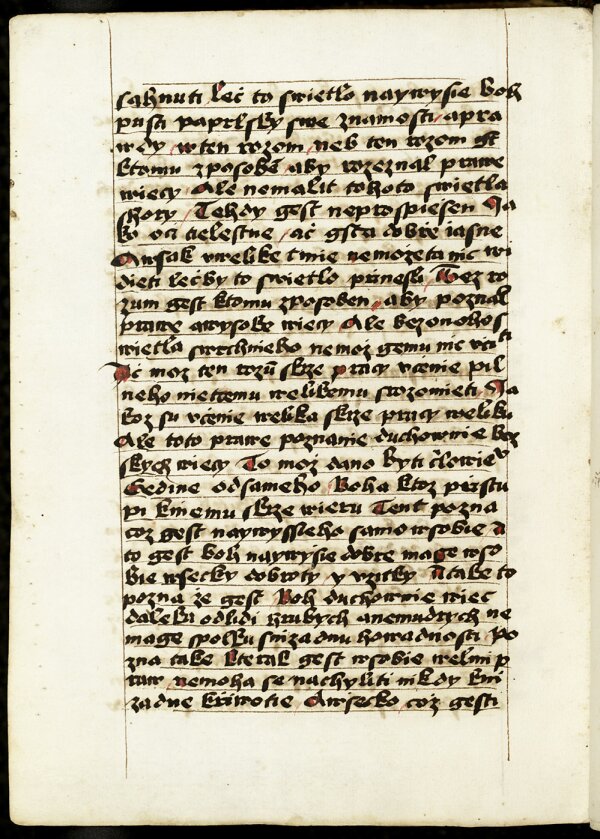 sahnuti leč to swietlo naywysie boh
pusti paprlsky swe znamosti / a pra
wdy / w ten rozom / neb ten rozom gt
ktomu zposobē aby rozeznal prawe
wiecy Ale nemalit tohoto swietla
shory / Tehdy gest neprospiesen Ja
ko oci tielestne / ač gsta dobrė iasne
Awsak wwelike tmie nemožeta nic wi
dieti lečby to swietlo prinesli Bez ro
zum gest ktomu zposoben / aby poznal
prawe a wysoke wiecy Ale bez onoho s
wietla swrchnieho nemož gemu nic viti
Ač moz ten rozū skrze pracy včenie pil
neho niečemu welikemu srozomieti Ja
koz su včenie welika skrze pracy weliku
Ale toto prawe poznanie duchownie boz
skych wiecy To mož dano byti člowiev
Gedine odsameho Boha ktoz przistu
pi kniemu skrze wieru Tent pozna
coz gest naywyssieho samo wsobie a
to gest boh naywysie dobre mage wso
bie wsecky dobroty y vzitky A take to
pozna že gest Boh duchownie wiec
daleka odlidi hrubych a nemudrych ne
mage spolku snizadnu howadnosti Po
zna take kterak gest wsobie welmi p
raw nemoha se nachyliti nikdy kni
zadne křiwotie Awsecko coz gesti